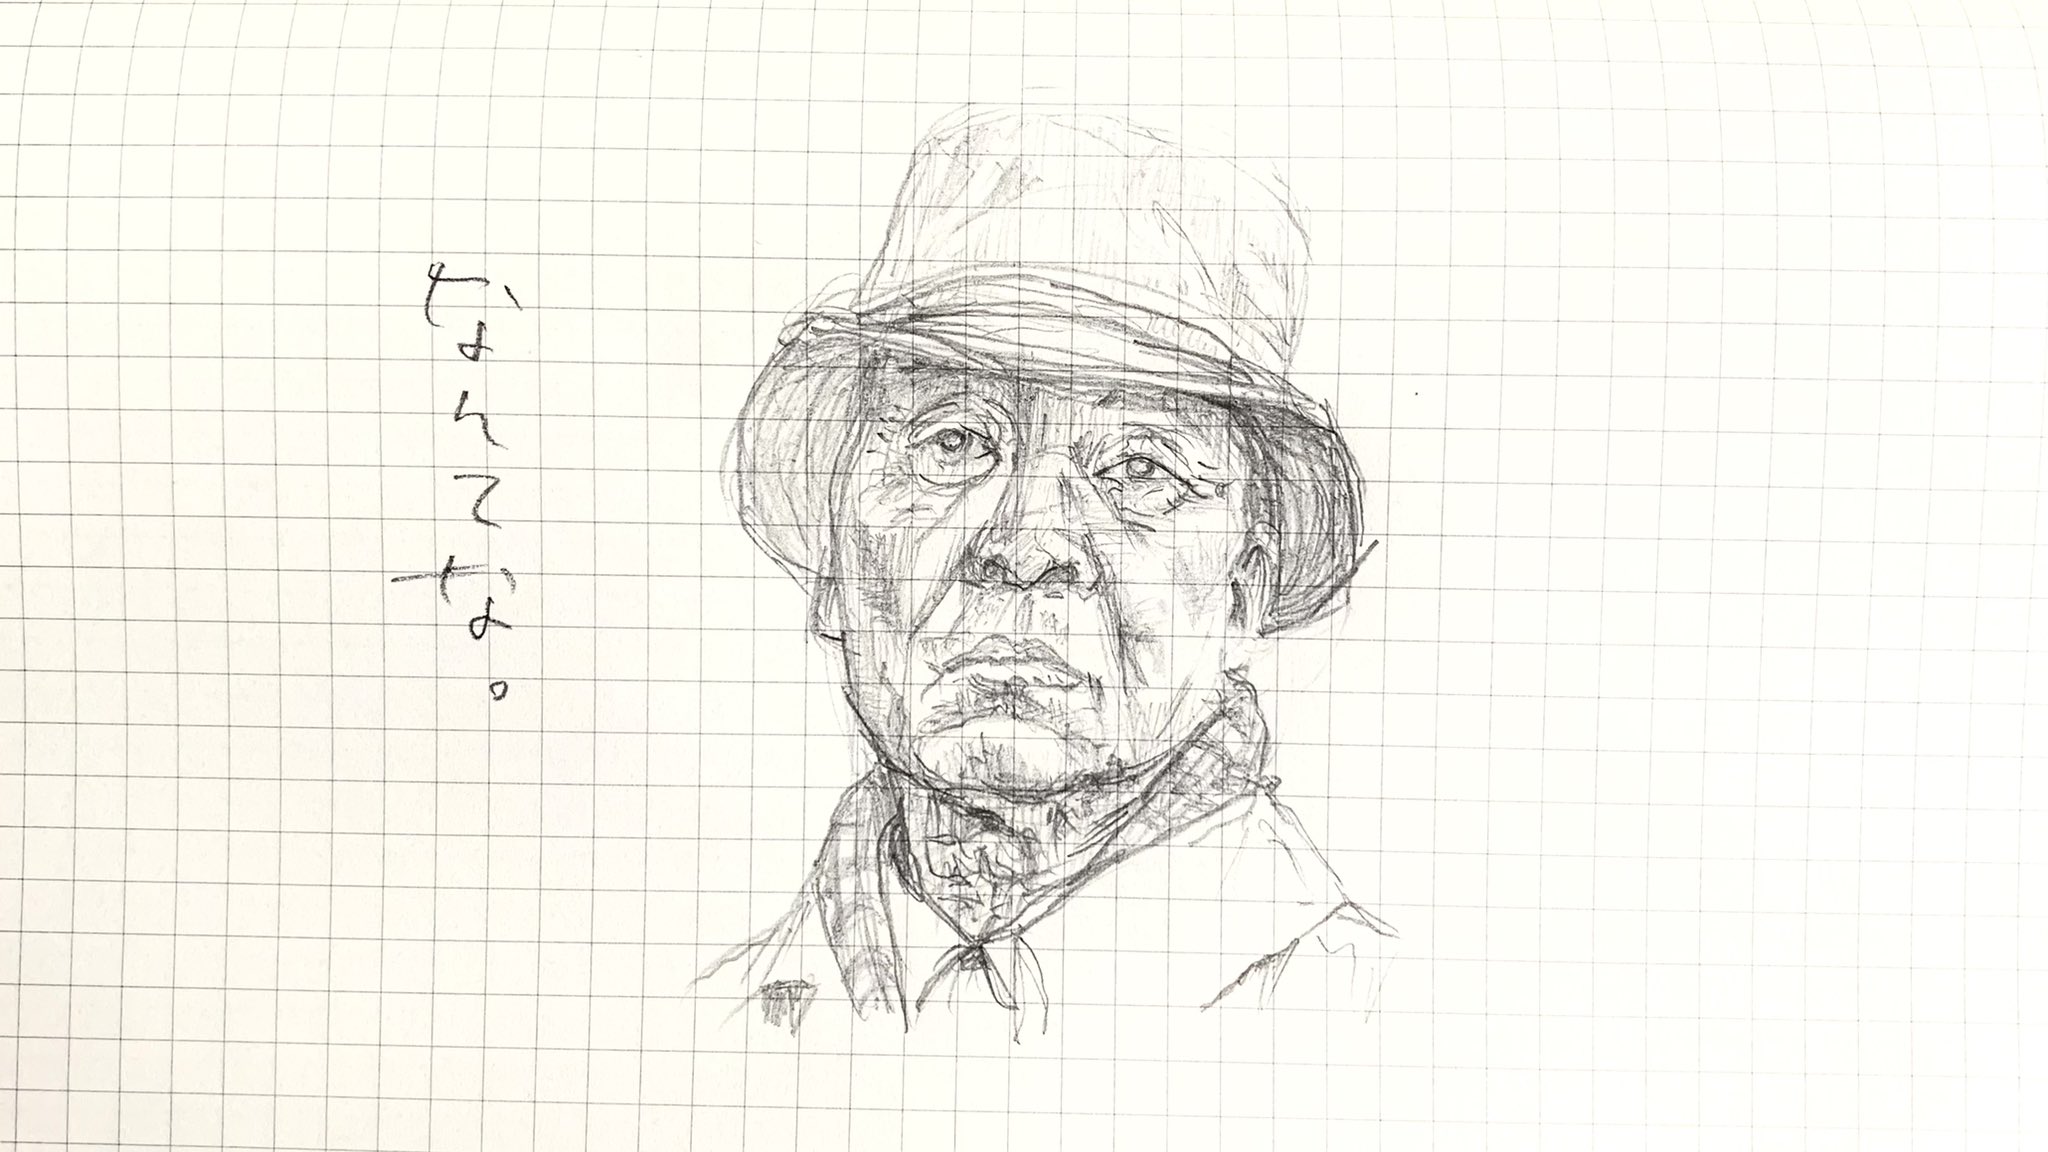 なんてな。